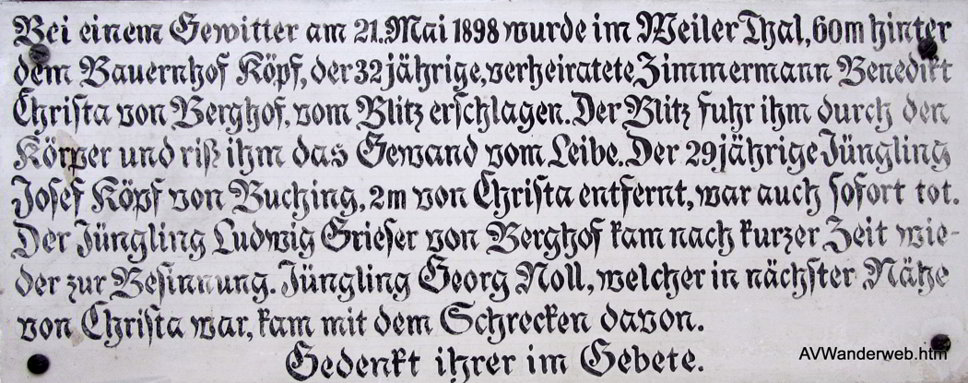 Bei einem Gewitter am 21. Mai 1898 wurde im Weiler Thal, 60m hinter
dem Bauernhof Köpf, der 32 jährige, verheiratete Zimmermann Benedikt
Christa von Berghof, vom Blitz erschlagen. Der Blitz fuhr ihm durch den
Körper und riß ihm das Gewand vom Leibe. Der 29jährige Jüngling
Josef Köpf von Buching, 2m von Christa entfernt, war auch sofort tot.
Der Jüngling Ludwig Grieser von Berghof kam nach kurzer Zeit wie-
der zur Besinnung. Jüngling Georg Noll, welcher in nächster Nähe
von Christa war, kam mit dem Schrecken davon.
Gedenkt ihrer im Gebete.
AVWanderweb.htm